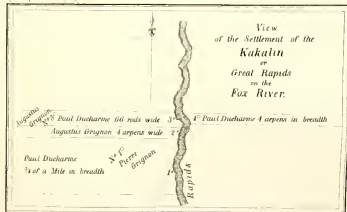 View
of the Settlement of the
Kakalin
or
Great Rapids
on the
Fox River.
Augustus
Grignon
No 3° Paul Ducharme 60 rods wide 3°
4° Paul Ducharme 4 arpens in breadth
Augustus Grignon 4 arpens wide 2°
No 1° Pierre
Grignon
Paul Ducharme
¾ of a Mile in breadth
1°
Rapids